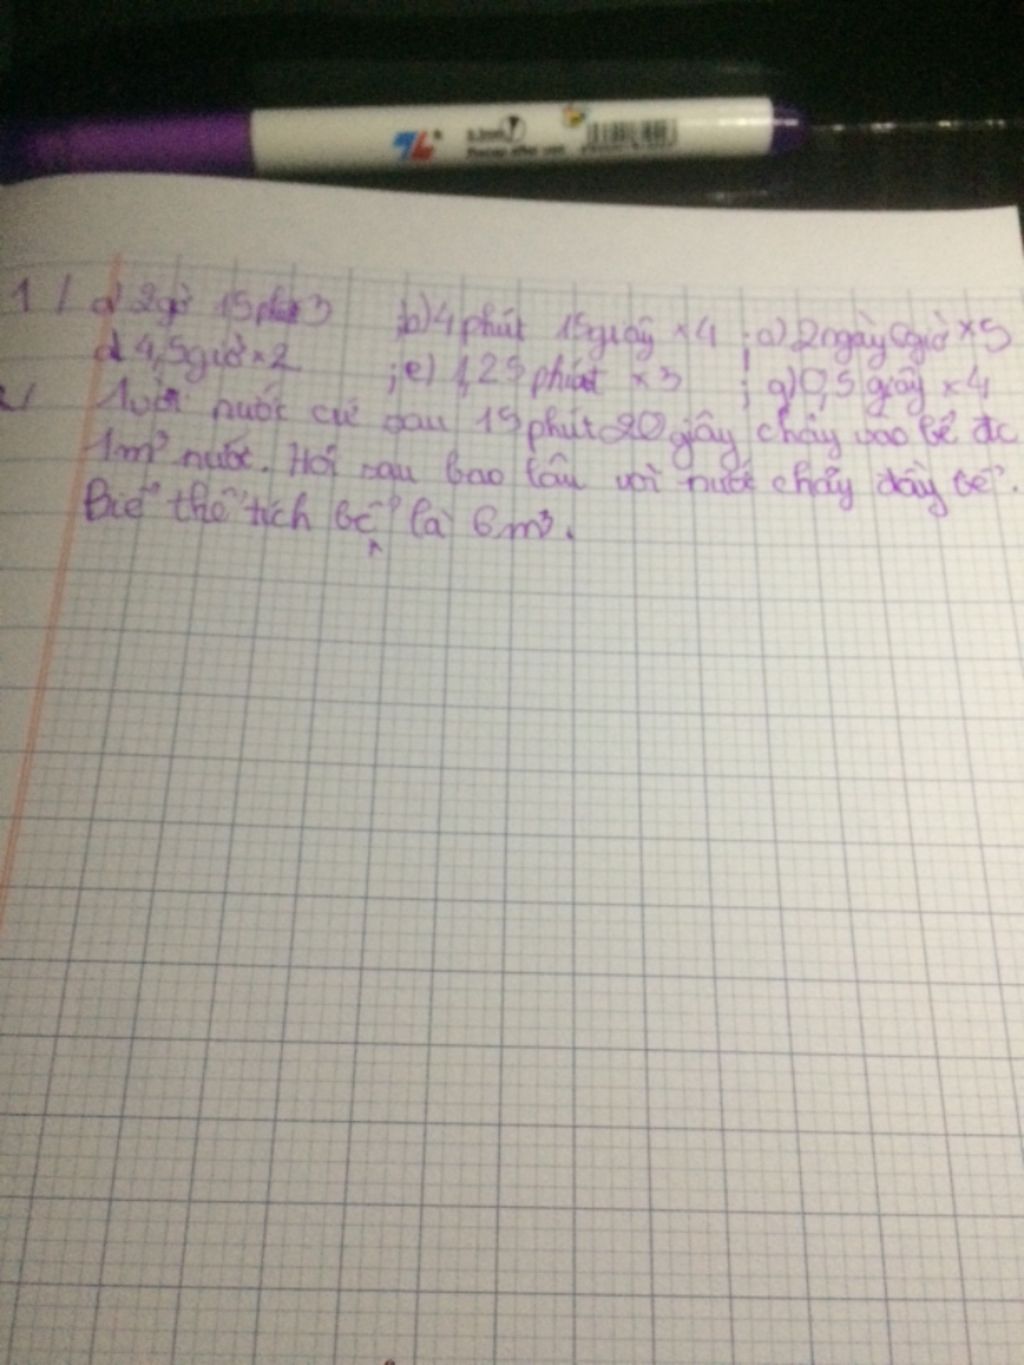 TL
0.3mm
1/ a) 2 giờ 15 phút 3 b) 4 phút 15 giây × 4 ; a) 2 ngày 6 giờ × 5
d) 4,5 giờ × 2 ; e) 1,25 phút × 3 ; g) 0,5 giây × 4
2/ 1 vòi nước cứ sau 15 phút 20 giây chảy vào bể đc
1m³ nước. Hỏi sau bao lâu vòi nước chảy đầy bể.
Biế thể tích bể là 6m³.